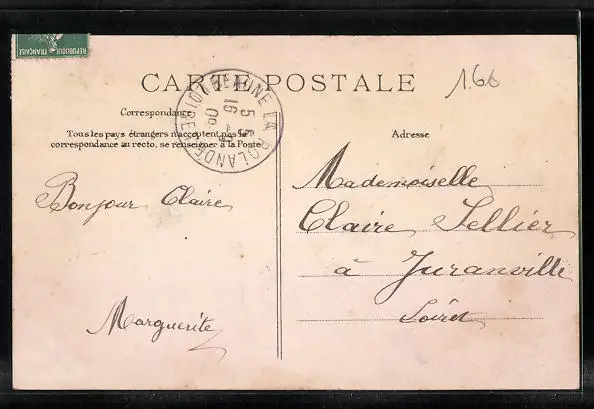 RÉPUBLIQUE FRANÇAISE
CARTE POSTALE
1.66
BEAUNE LA ROLANDE
Correspondance
Tous les pays étrangers n'acceptent pas la
correspondance au recto, se renseigner à la Poste
Adresse
Bonjour Claire
Marguerite
Mademoiselle
Claire Sellier
à Juranville
Loiret